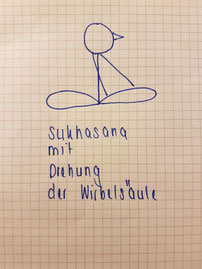 Sukhasana
mit
Drehung
der Wirbelsäule